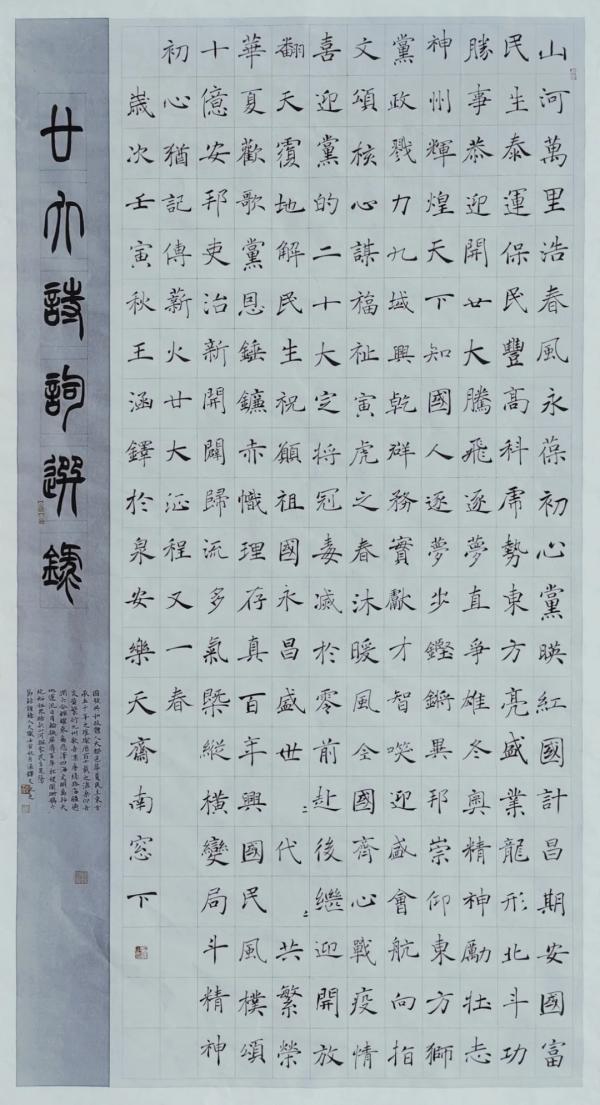 山河萬里浩春風永葆初心黨暎紅國計昌期安國富
民生泰運保民豐高科虎勢東方亮盛業龍形北斗功
勝事恭迎開廿大騰飛逐夢直爭雄冬奧精神勵壮志
神州輝煌天下知國人逐夢步鏗鏘異邦崇仰東方獅
黨政戮力九域興乾群務實獻才智咲迎盛會航向指
文頌核心謀福祉寅虎之春沐暖風全國齊心戰疫情
喜迎黨的二十大定将冠毒滅於零前赴後繼迎開放
翻天覆地解民生祝願祖國永昌盛世代共繁榮
華夏歡歌黨恩錘鐮赤幟理存真百年興國民風樸頌
十億安邦吏治新開闢歸流多氣槩縱橫變局斗精神
初心猶記傳薪火廿大征程又一春
歲次壬寅秋王涵鐸於泉安樂天齋南窓下
廿大詩詞選錄